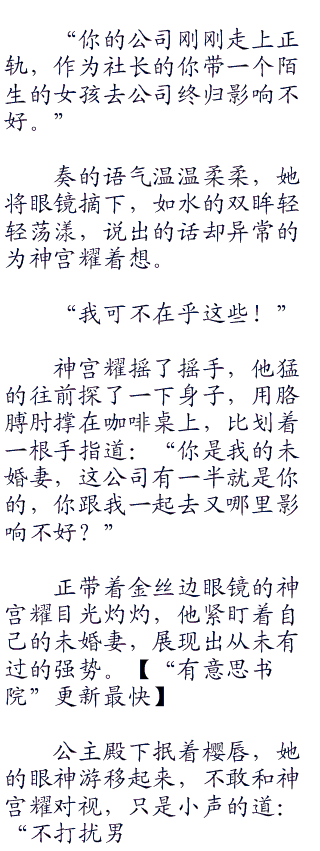 “你的公司刚刚走上正
轨，作为社长的你带一个陌
生的女孩去公司终归影响不
好。”
奏的语气温温柔柔，她
将眼镜摘下，如水的双眸轻
轻荡漾，说出的话却异常的
为神宫耀着想。
“我可不在乎这些！”
神宫耀摇了摇手，他猛
的往前探了一下身子，用胳
膊肘撑在咖啡桌上，比划着
一根手指道：“你是我的未
婚妻，这公司有一半就是你
的，你跟我一起去又哪里影
响不好？”
正带着金丝边眼镜的神
宫耀目光灼灼，他紧盯着自
己的未婚妻，展现出从未有
过的强势。【“有意思书
院”更新最快】
公主殿下抿着樱唇，她
的眼神游移起来，不敢和神
宫耀对视，只是小声的道：
“不打扰男